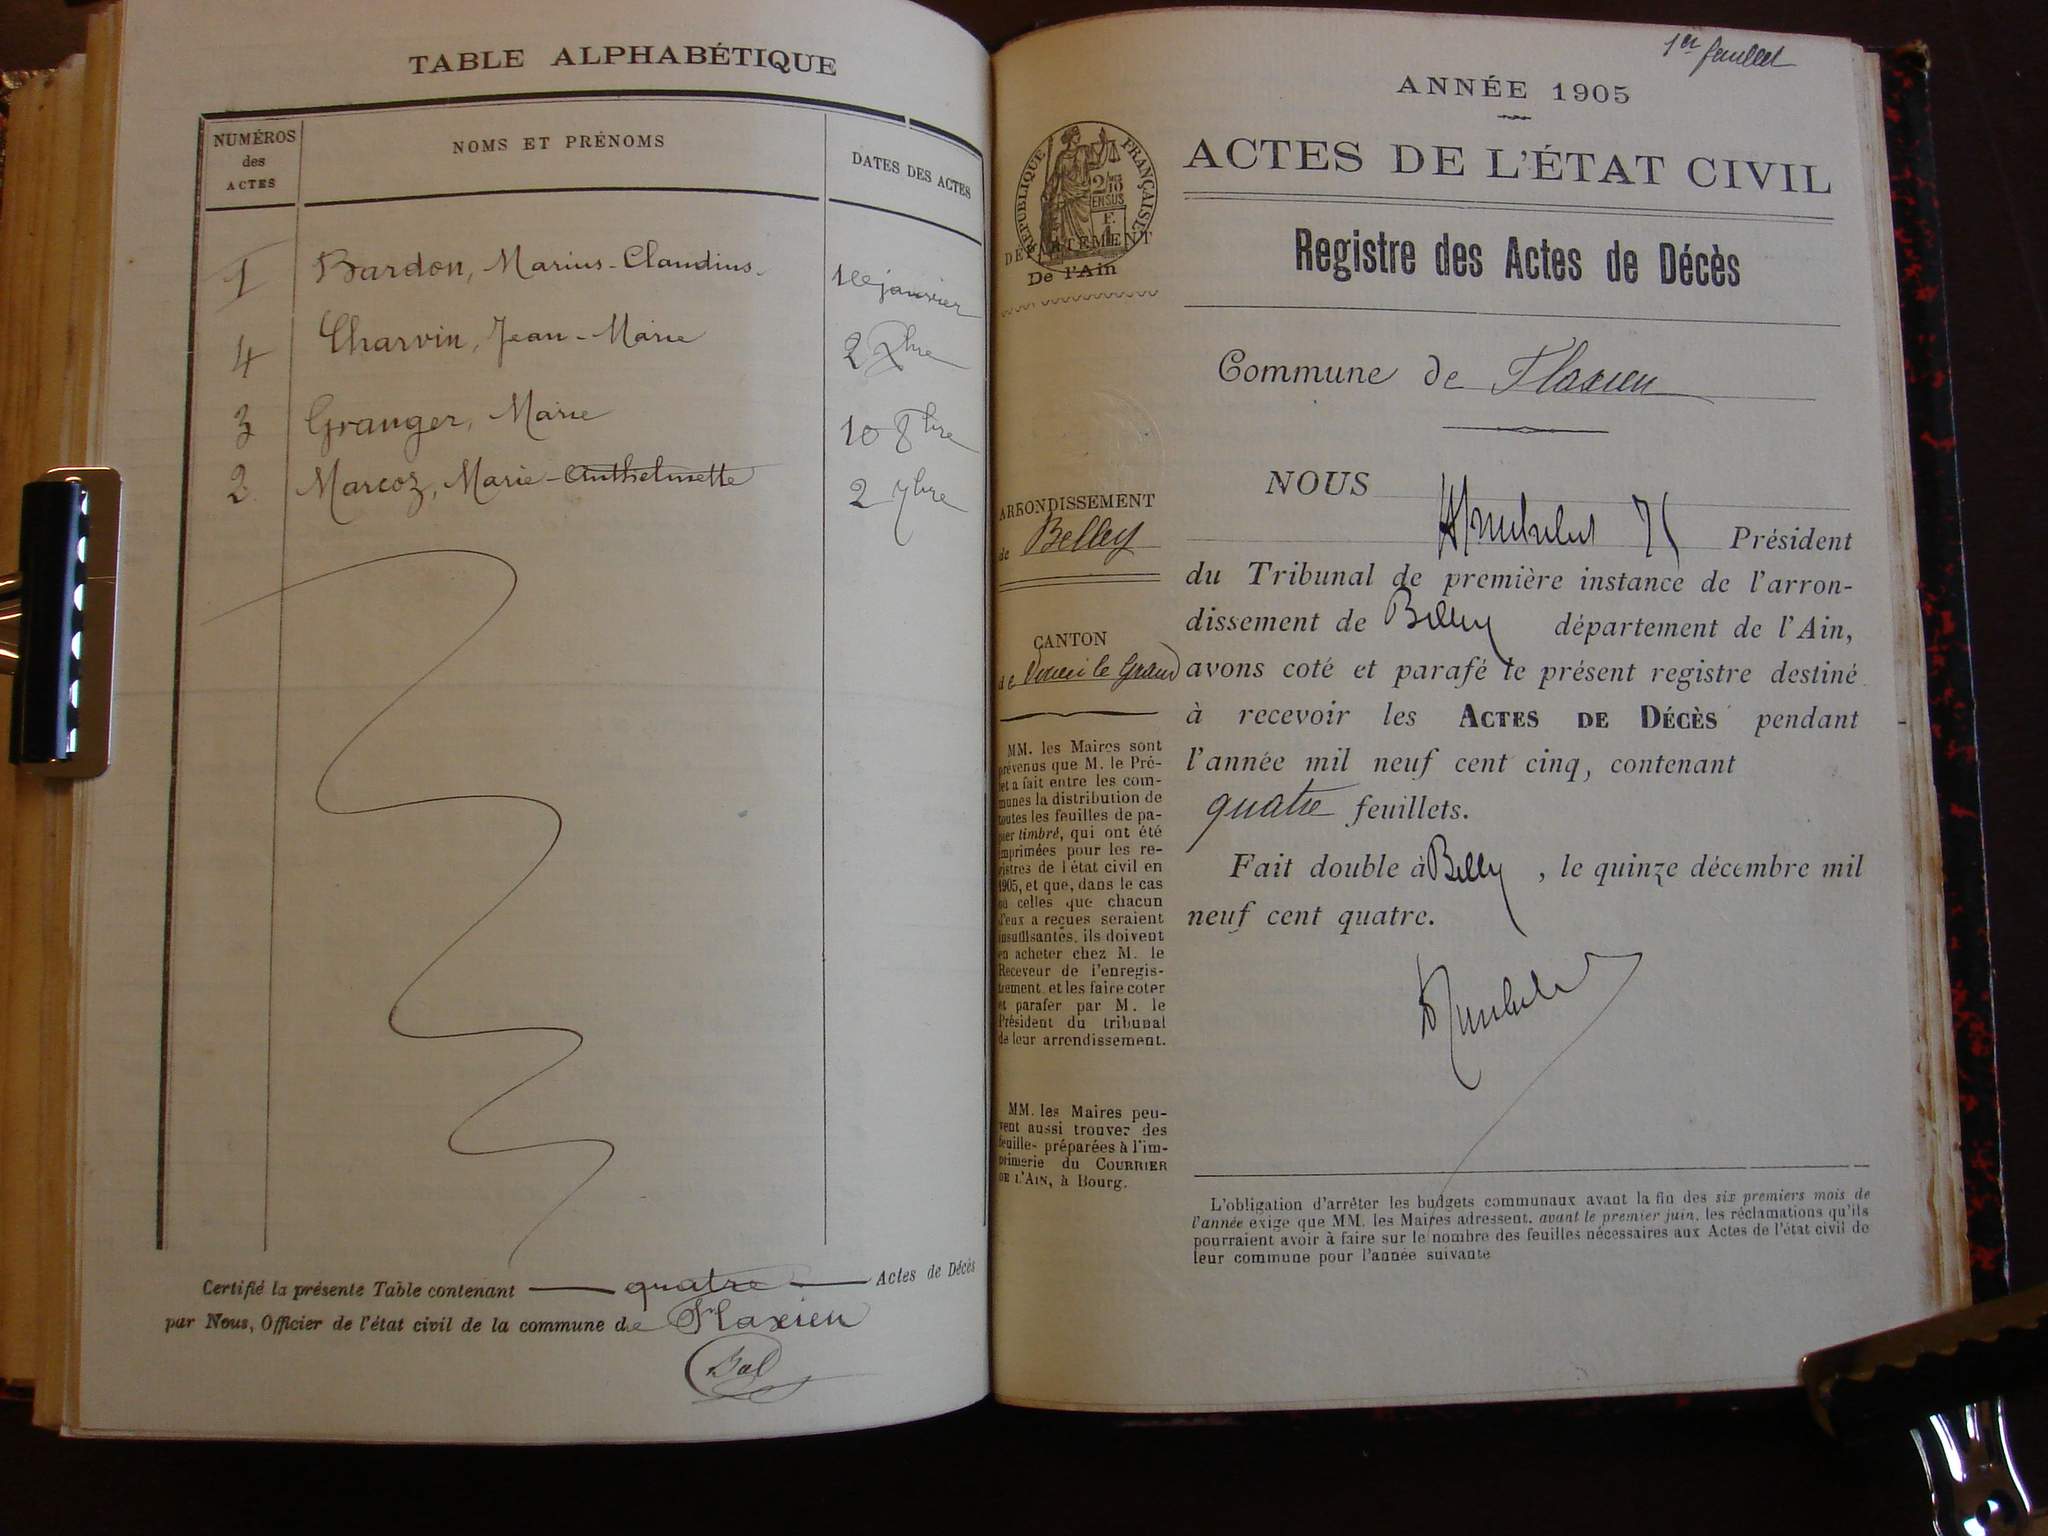 TABLE ALPHABÉTIQUE
NUMÉROS
des
ACTES
NOMS ET PRÉNOMS
DATES DES ACTES
1 Bardon, Marius-Claudius 10 janvier
4 Charvin, Jean-Marie 2 Xbre
3 Granger, Marie 10 8bre
2 Marcoz, Marie-Anthelmette 2 7bre
Certifié la présente Table contenant quatre Actes de Décès
par Nous, Officier de l'état civil de la commune de Flaxieu
Bal
1er feuillet
ANNÉE 1905
ACTES DE L'ÉTAT CIVIL
RÉPUBLIQUE FRANÇAISE
2/10
EN SUS
DÉPARTEMENT
De l'Ain
Registre des Actes de Décès
Commune de Flaxieu
ARRONDISSEMENT
de Belley
CANTON
de Virieu le Grand
MM. les Maires sont
prévenus que M. le Pré-
fet a fait entre les com-
munes la distribution de
toutes les feuilles de pa-
pier timbré, qui ont été
imprimées pour les re-
gistres de l'état civil en
1905, et que, dans le cas
où celles que chacun
d'eux a reçues seraient
insuffisantes, ils doivent
en acheter chez M. le
Receveur de l'enregis-
trement et les faire coter
et parafer par M. le
Président du tribunal
de leur arrondissement.
MM. les Maires peu-
vent aussi trouver des
feuilles préparées à l'im-
primerie du COURRIER
DE L'AIN, à Bourg.
NOUS
Président
du Tribunal de première instance de l'arron-
dissement de Belley département de l'Ain,
avons coté et parafé le présent registre destiné
à recevoir les ACTES DE DÉCÈS pendant
l'année mil neuf cent cinq, contenant
quatre feuillets.
Fait double à Belley, le quinze décembre mil
neuf cent quatre.
L'obligation d'arrêter les budgets communaux avant la fin des six premiers mois de
l'année exige que MM. les Maires adressent, avant le premier juin, les réclamations qu'ils
pourraient avoir à faire sur le nombre des feuilles nécessaires aux Actes de l'état civil de
leur commune pour l'année suivante